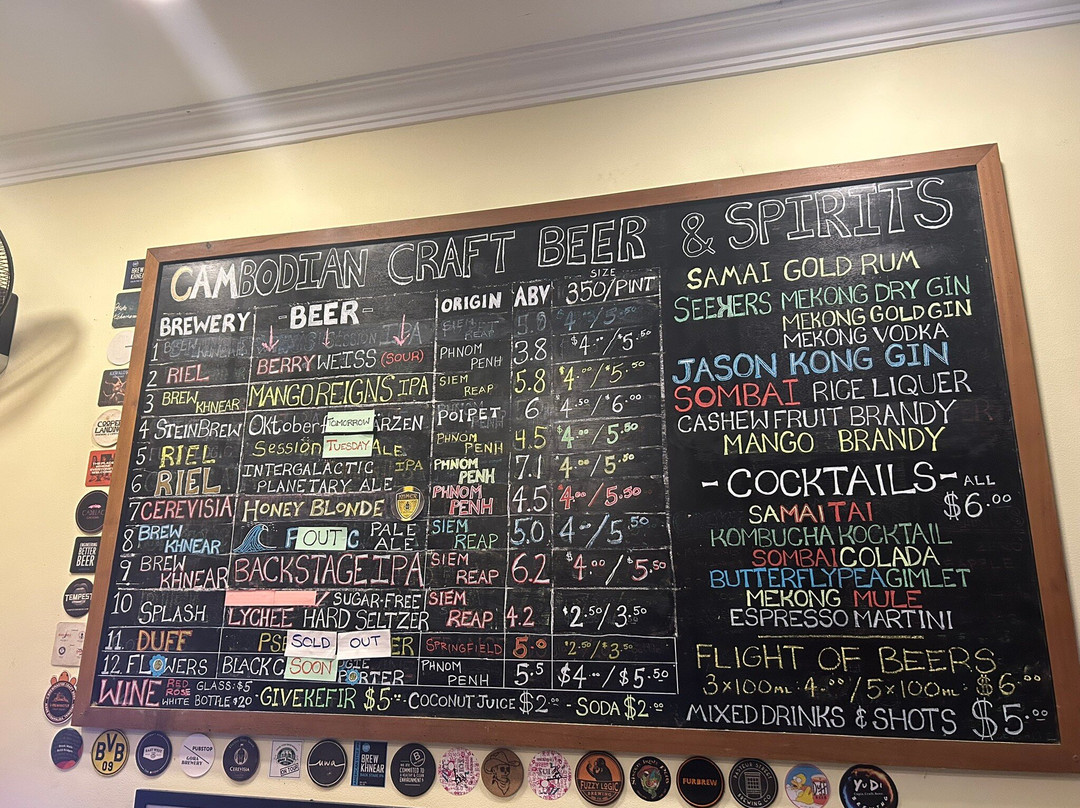 CAMBODIAN CRAFT BEER & SPIRITS
BREWERY -BEER- ORIGIN ABV SIZE 350/PINT
1 SESSION IPA SIEM REAP 5.8
2 RIEL BERRY WEISS (SOUR) PHNOM PENH 3.8 $4.00/5.50
3 BREW KHNEAR MANGO REIGNS IPA SIEM REAP 5.8 $4.00/$5.50
4 STEINBREW Oktober TOMORROW ÄRZEN POIPET 6 4.50/$6.00
5 RIEL Session TUESDAY ALE PHNOM PENH 4.5 $4.00/5.50
6 RIEL INTERGALACTIC IPA PLANETARY ALE PHNOM PENH 7.1 4.00/5.50
7 CEREVISIA HONEY BLONDE PHNOM PENH 4.5 4.00/5.50
8 BREW KHNEAR OUT PALE ALE SIEM REAP 5.0 4.00/5.50
9 BREW KHNEAR BACKSTAGE IPA SIEM REAP 6.2 $4.00/5.50
10 SPLASH SUGAR-FREE LYCHEE HARD SELTZER SIEM REAP 4.2 $2.50/3.50
11 DUFF SOLD OUT ER SPRINGFIELD 5.0 $2.50/$3.50
12. FLOWERS BLACK SOON PORTER PHNOM PENH 5.5 $4.00/$5.50
WINE RED ROSE WHITE GLASS:$5 BOTTLE $20 ·GIVEKEFIR $5.00 ·COCONUT JUICE $2.00 - SODA $2.00
SAMAI GOLD RUM
SEEKERS MEKONG DRY GIN
MEKONG GOLD GIN
MEKONG VODKA
JASON KONG GIN
SOMBAI RICE LIQUER
CASHEW FRUIT BRANDY
MANGO BRANDY
-COCKTAILS- ALL $6.00
SAMAI TAI
KOMBUCHA KOCKTAIL
SOMBAI COLADA
BUTTERFLYPEA GIMLET
MEKONG MULE
ESPRESSO MARTINI
FLIGHT OF BEERS
3x100mL·4.00/5x100mL·$6.00
MIXED DRINKS & SHOTS $5.00
COOPERS LANDING
BETTER BEER
TEMPEST
BVB 09
PUBSTOP
CEREVISIA
uwa
BREW KHNEAR
FUZZY LOGIC
FURBREW
PASTEUR STREET BREWING CO
YuDi